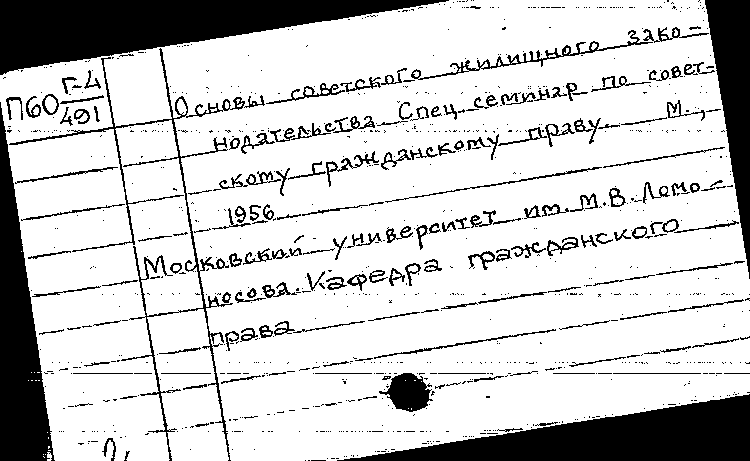 П60 Г-4/491
Основы советского жилищного зако-
нодательства. Спец. семинар по совет-
скому гражданскому праву. М.,
1956
Московский университет им. М.В. Ломо-
носова. Кафедра гражданского
права.